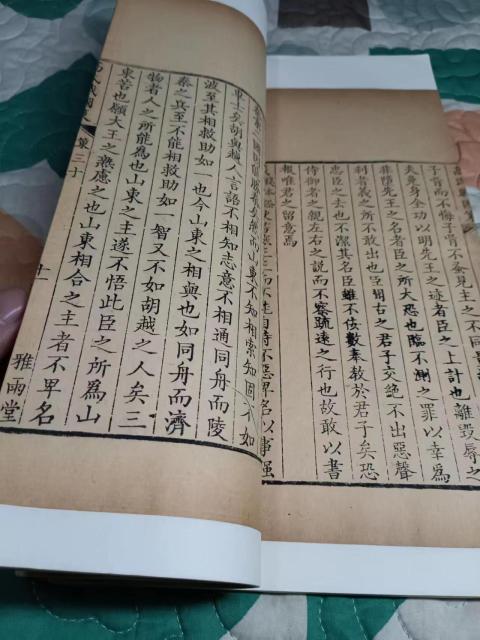 子胥而不悔子胥不蚤見主之不同量
夫免身全功以明先王之迹者臣之上計也離毀辱之
非墮先王之名者臣之所大恐也臨不測之罪以幸為
利者義之所不敢出也臣聞古之君子交絕不出惡聲
忠臣之去也不潔其名臣雖不佞數奉教於君子矣恐
侍御者之親左右之說而不察疏遠之行也故敢以書
報唯君之留意焉
王而不能自恃不惡卑名以事強
而山東不知相索知固不如
車士矣胡與越人言語不相知志意不相通同舟而陵
波至其相救助如一也今山東之相與也如同舟而濟
秦之兵至不能相救助如一智又不如胡越之人矣三
物者人之所能為也山東之主遂不悟此臣之所為山
東苦也願大王之熟慮之也山東相合之主者不卑名
卷三十
十
雅雨堂